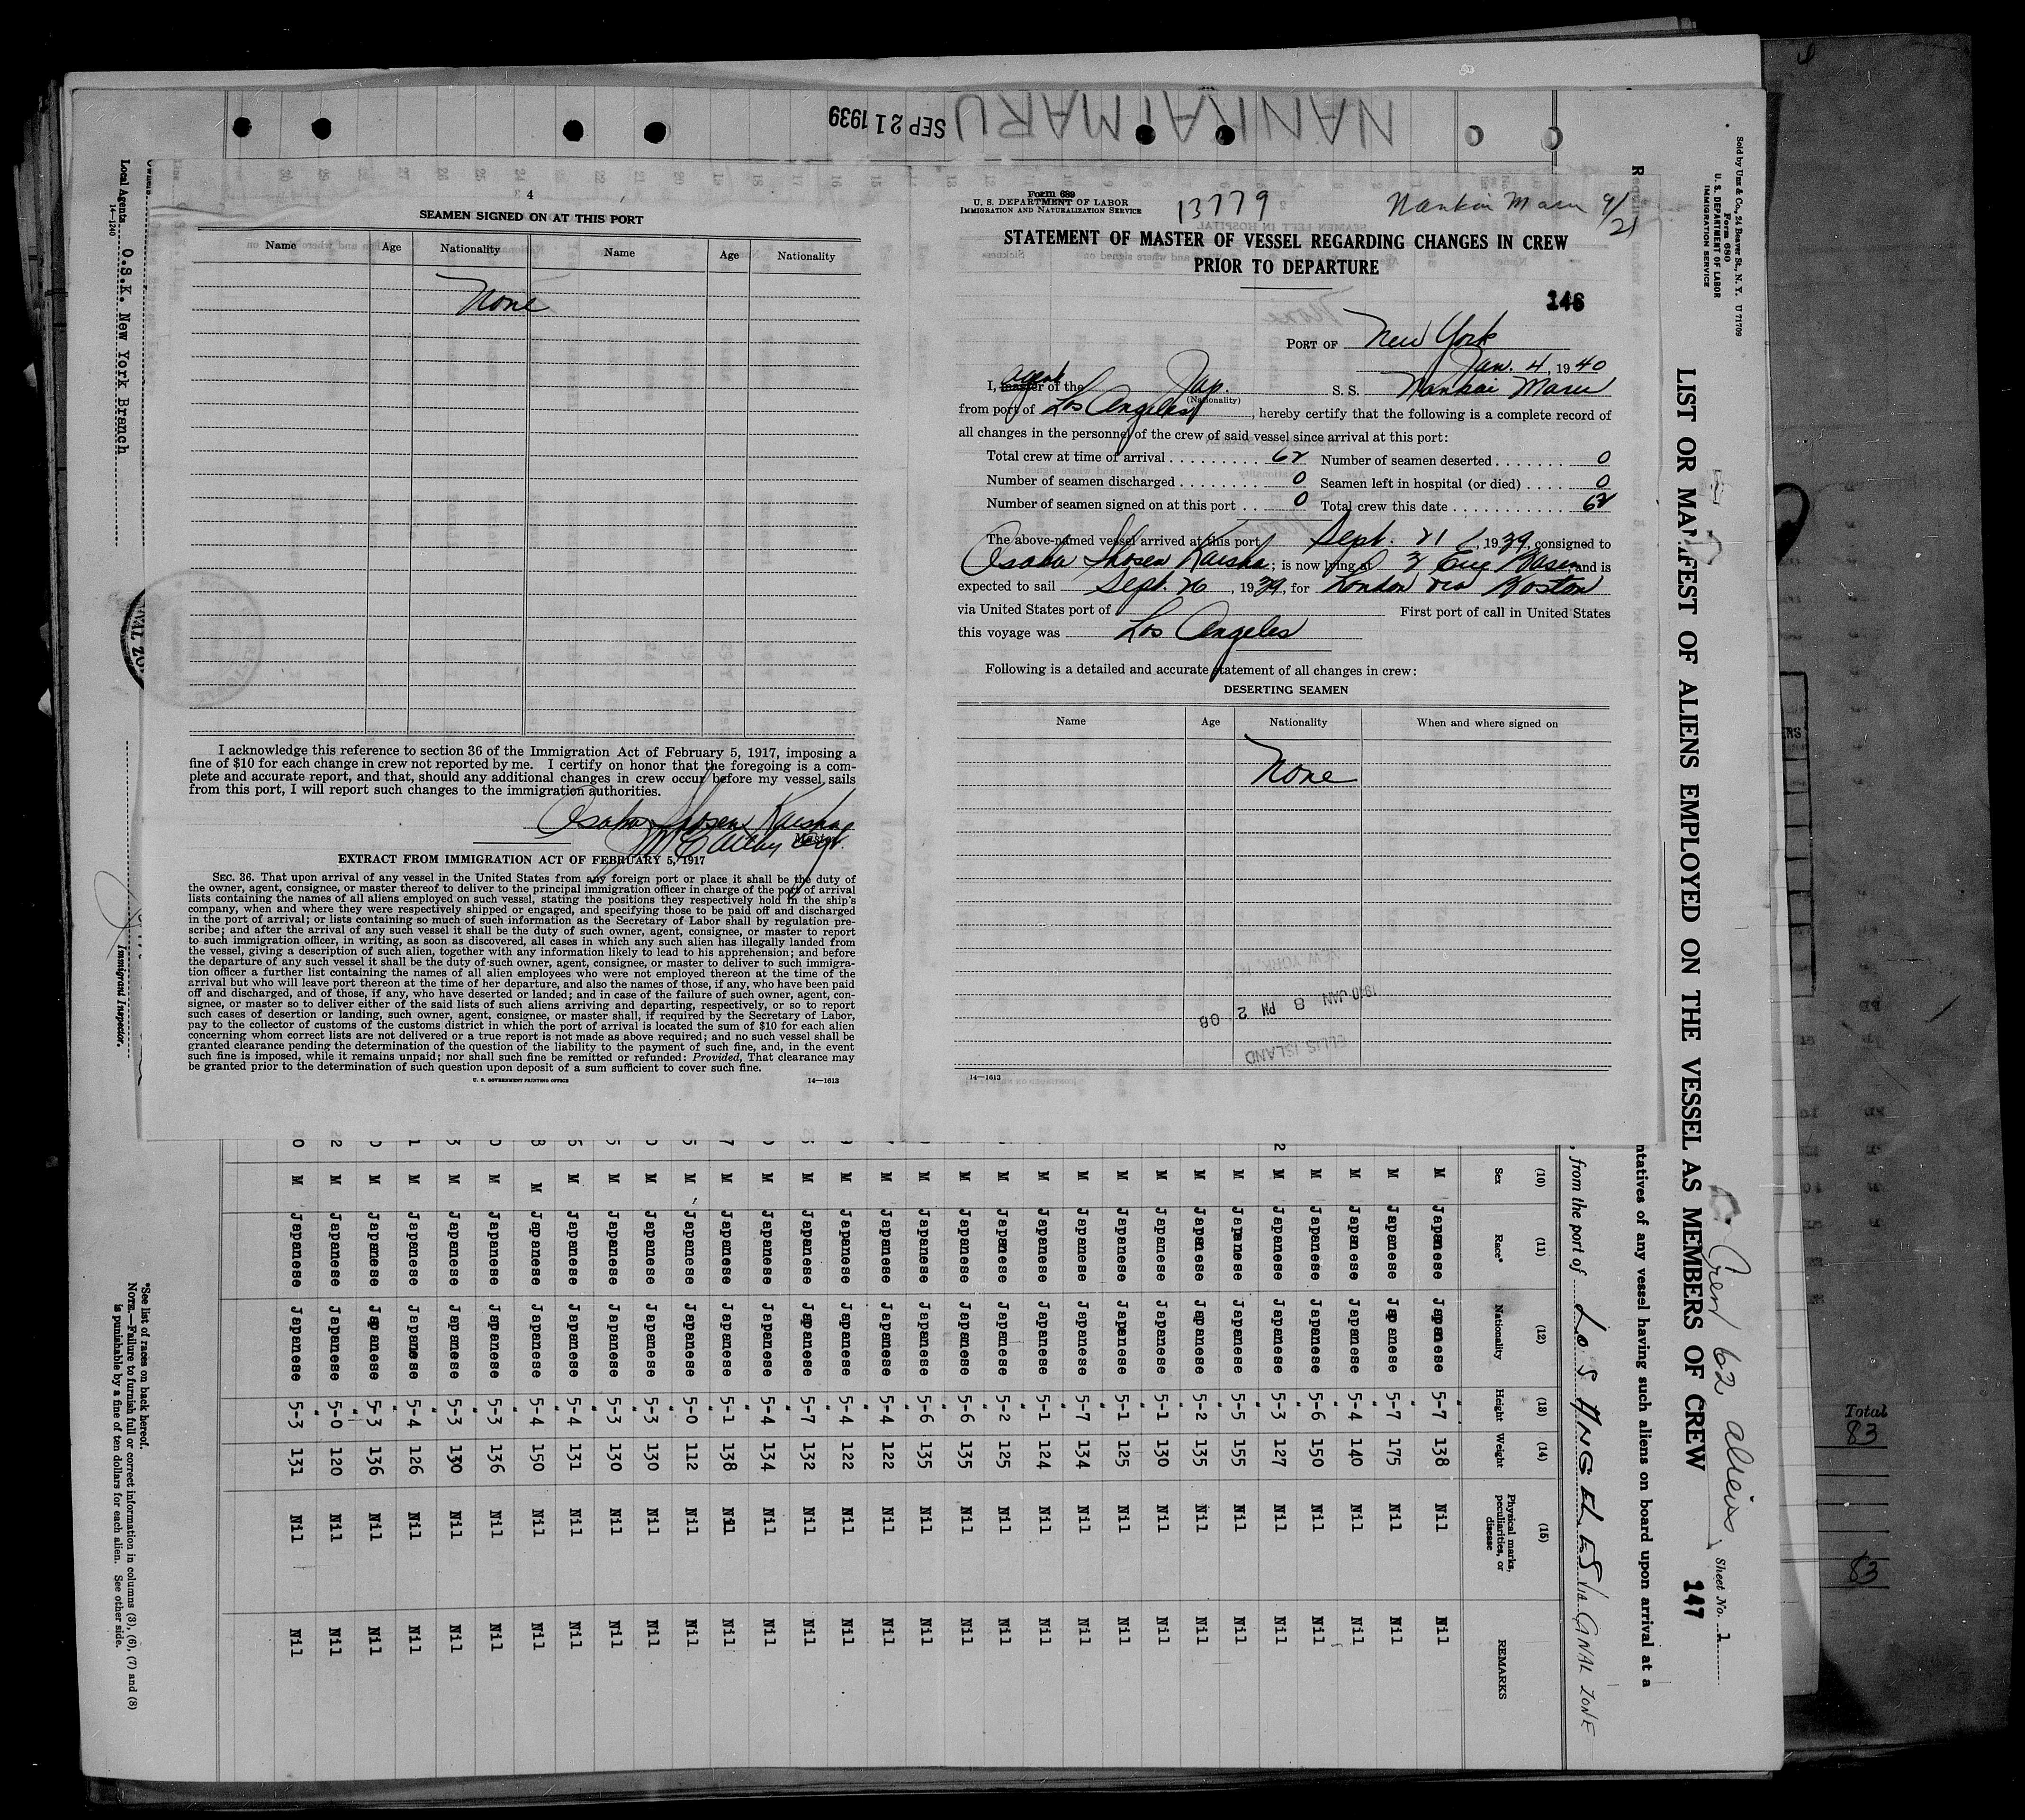 NANKAI MARU
SEP 21 1939
4
SEAMEN SIGNED ON AT THIS PORT
Name Age Nationality Name Age Nationality
None
I acknowledge this reference to section 36 of the Immigration Act of February 5, 1917, imposing a
fine of $10 for each change in crew not reported by me. I certify on honor that the foregoing is a com-
plete and accurate report, and that, should any additional changes in crew occur before my vessel sails
from this port, I will report such changes to the immigration authorities.
Osaka Shosen Kaisha
Master.
EXTRACT FROM IMMIGRATION ACT OF FEBRUARY 5, 1917
SEC. 36. That upon arrival of any vessel in the United States from any foreign port or place it shall be the duty of
the owner, agent, consignee, or master thereof to deliver to the principal immigration officer in charge of the port of arrival
lists containing the names of all aliens employed on such vessel, stating the positions they respectively hold in the ship's
company, when and where they were respectively shipped or engaged, and specifying those to be paid off and discharged
in the port of arrival; or lists containing so much of such information as the Secretary of Labor shall by regulation pre-
scribe; and after the arrival of any such vessel it shall be the duty of such owner, agent, consignee, or master to report
to such immigration officer, in writing, as soon as discovered, all cases in which any such alien has illegally landed from
the vessel, giving a description of such alien, together with any information likely to lead to his apprehension; and before
the departure of any such vessel it shall be the duty of such owner, agent, consignee, or master to deliver to such immigra-
tion officer a further list containing the names of all alien employees who were not employed thereon at the time of the
arrival but who will leave port thereon at the time of her departure, and also the names of those, if any, who have been paid
off and discharged, and of those, if any, who have deserted or landed; and in case of the failure of such owner, agent, con-
signee, or master so to deliver either of the said lists of such aliens arriving and departing, respectively, or so to report
such cases of desertion or landing, such owner, agent, consignee, or master shall, if required by the Secretary of Labor,
pay to the collector of customs of the customs district in which the port of arrival is located the sum of $10 for each alien
concerning whom correct lists are not delivered or a true report is not made as above required; and no such vessel shall be
granted clearance pending the determination of the question of the liability to the payment of such fine, and, in the event
such fine is imposed, while it remains unpaid; nor shall such fine be remitted or refunded: Provided, That clearance may
be granted prior to the determination of such question upon deposit of a sum sufficient to cover such fine.
U. S. GOVERNMENT PRINTING OFFICE 14—1613
Form 689
U. S. DEPARTMENT OF LABOR
IMMIGRATION AND NATURALIZATION SERVICE
13779
Nankai Maru 9/21
STATEMENT OF MASTER OF VESSEL REGARDING CHANGES IN CREW
PRIOR TO DEPARTURE
146
PORT OF New York
Jan. 4, 1940
I, agent master of the Jap. S. S. Nankai Maru
(Nationality)
from port of Los Angeles, hereby certify that the following is a complete record of
all changes in the personnel of the crew of said vessel since arrival at this port:
Total crew at time of arrival 62 Number of seamen deserted 0
Number of seamen discharged 0 Seamen left in hospital (or died) 0
Number of seamen signed on at this port 0 Total crew this date 62
The above-named vessel arrived at this port Sept. 21, 1939, consigned to
Osaka Shosen Kaisha; is now lying at Basin, and is
expected to sail Sept. 26, 1939, for London via Boston
via United States port of First port of call in United States
this voyage was Los Angeles
Following is a detailed and accurate statement of all changes in crew:
DESERTING SEAMEN
Name Age Nationality When and where signed on
None
NEW YORK, N.Y.
1940 JAN 8 PM 2 08
ELLIS ISLAND
14—1613
Sold by Unz & Co., 24 Beaver St., N. Y. U 71709
Form 680
U. S. DEPARTMENT OF LABOR
IMMIGRATION SERVICE
LIST OR MANIFEST OF ALIENS EMPLOYED ON THE VESSEL AS MEMBERS OF CREW 147
Crew 62 aliens
Sheet No. 1
ntatives of any vessel having such aliens on board upon arrival at a
, from the port of LOS ANGELES via CANAL ZONE
(10) (11) (12) (13) (14) (15)
Sex Race* Nationality Height Weight Physical marks, peculiarities, or disease REMARKS
M Japanese Japanese 5-7 138 Nil Nil
M Japanese Japanese 5-7 175 Nil Nil
M Japanese Japanese 5-4 140 Nil Nil
M Japanese Japanese 5-6 150 Nil Nil
2 M Japanese Japanese 5-3 127 Nil Nil
M Japanese Japanese 5-5 155 Nil Nil
M Japanese Japanese 5-2 135 Nil Nil
M Japanese Japanese 5-1 130 Nil Nil
M Japanese Japanese 5-1 125 Nil Nil
M Japanese Japanese 5-7 134 Nil Nil
M Japanese Japanese 5-1 124 Nil Nil
M Japanese Japanese 5-2 125 Nil Nil
M Japanese Japanese 5-6 135 Nil Nil
M Japanese Japanese 5-6 135 Nil Nil
M Japanese Japanese 5-4 122 Nil Nil
M Japanese Japanese 5-4 122 Nil Nil
M Japanese Japanese 5-7 132 Nil Nil
M Japanese Japanese 5-4 134 Nil Nil
M Japanese Japanese 5-1 138 Nil Nil
M Japanese Japanese 5-0 112 Nil Nil
M Japanese Japanese 5-3 130 Nil Nil
M Japanese Japanese 5-3 130 Nil Nil
M Japanese Japanese 5-4 131 Nil Nil
M Japanese Japanese 5-4 150 Nil Nil
M Japanese Japanese 5-3 136 Nil Nil
M Japanese Japanese 5-3 130 Nil Nil
M Japanese Japanese 5-4 126 Nil Nil
M Japanese Japanese 5-3 136 Nil Nil
M Japanese Japanese 5-0 120 Nil Nil
M Japanese Japanese 5-3 131 Nil Nil
Local Agents O.S.K. New York Branch
14—1240
Immigrant Inspector.
*See list of races on back hereof.
NOTE.—Failure to furnish full or correct information in columns (3), (6), (7) and (8)
is punishable by a fine of ten dollars for each alien. See other side.
Total
83
83